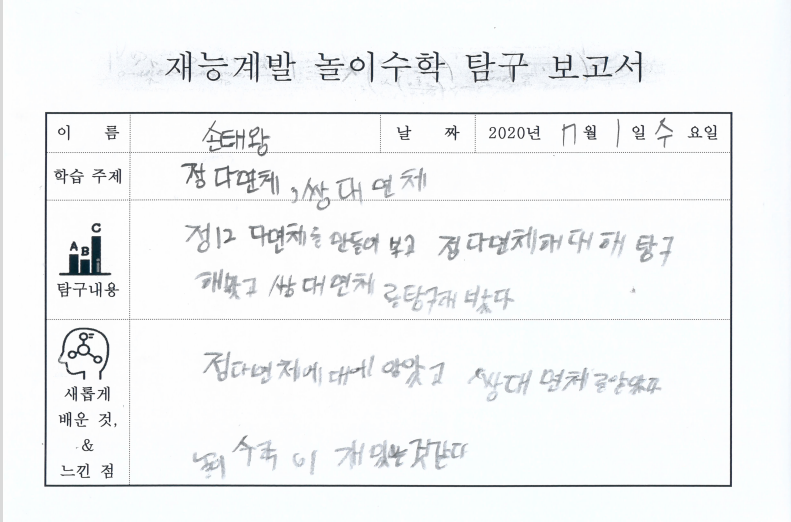 재능계발 놀이수학 탐구 보고서
이 름 손태왕 날 짜 2020년 7월 1일 수요일
학습 주제 정다면체, 쌍대면체
A B C
탐구내용
정12 다면체를 만들어 보고 정다면체에 대해 탐구
해봤고 쌍대면체를 탐구해 봤다
새롭게
배운 것,
&
느낀 점
정다면체에 대해 알았고 쌍대면체를 알았다
수학이 재밌는것같다